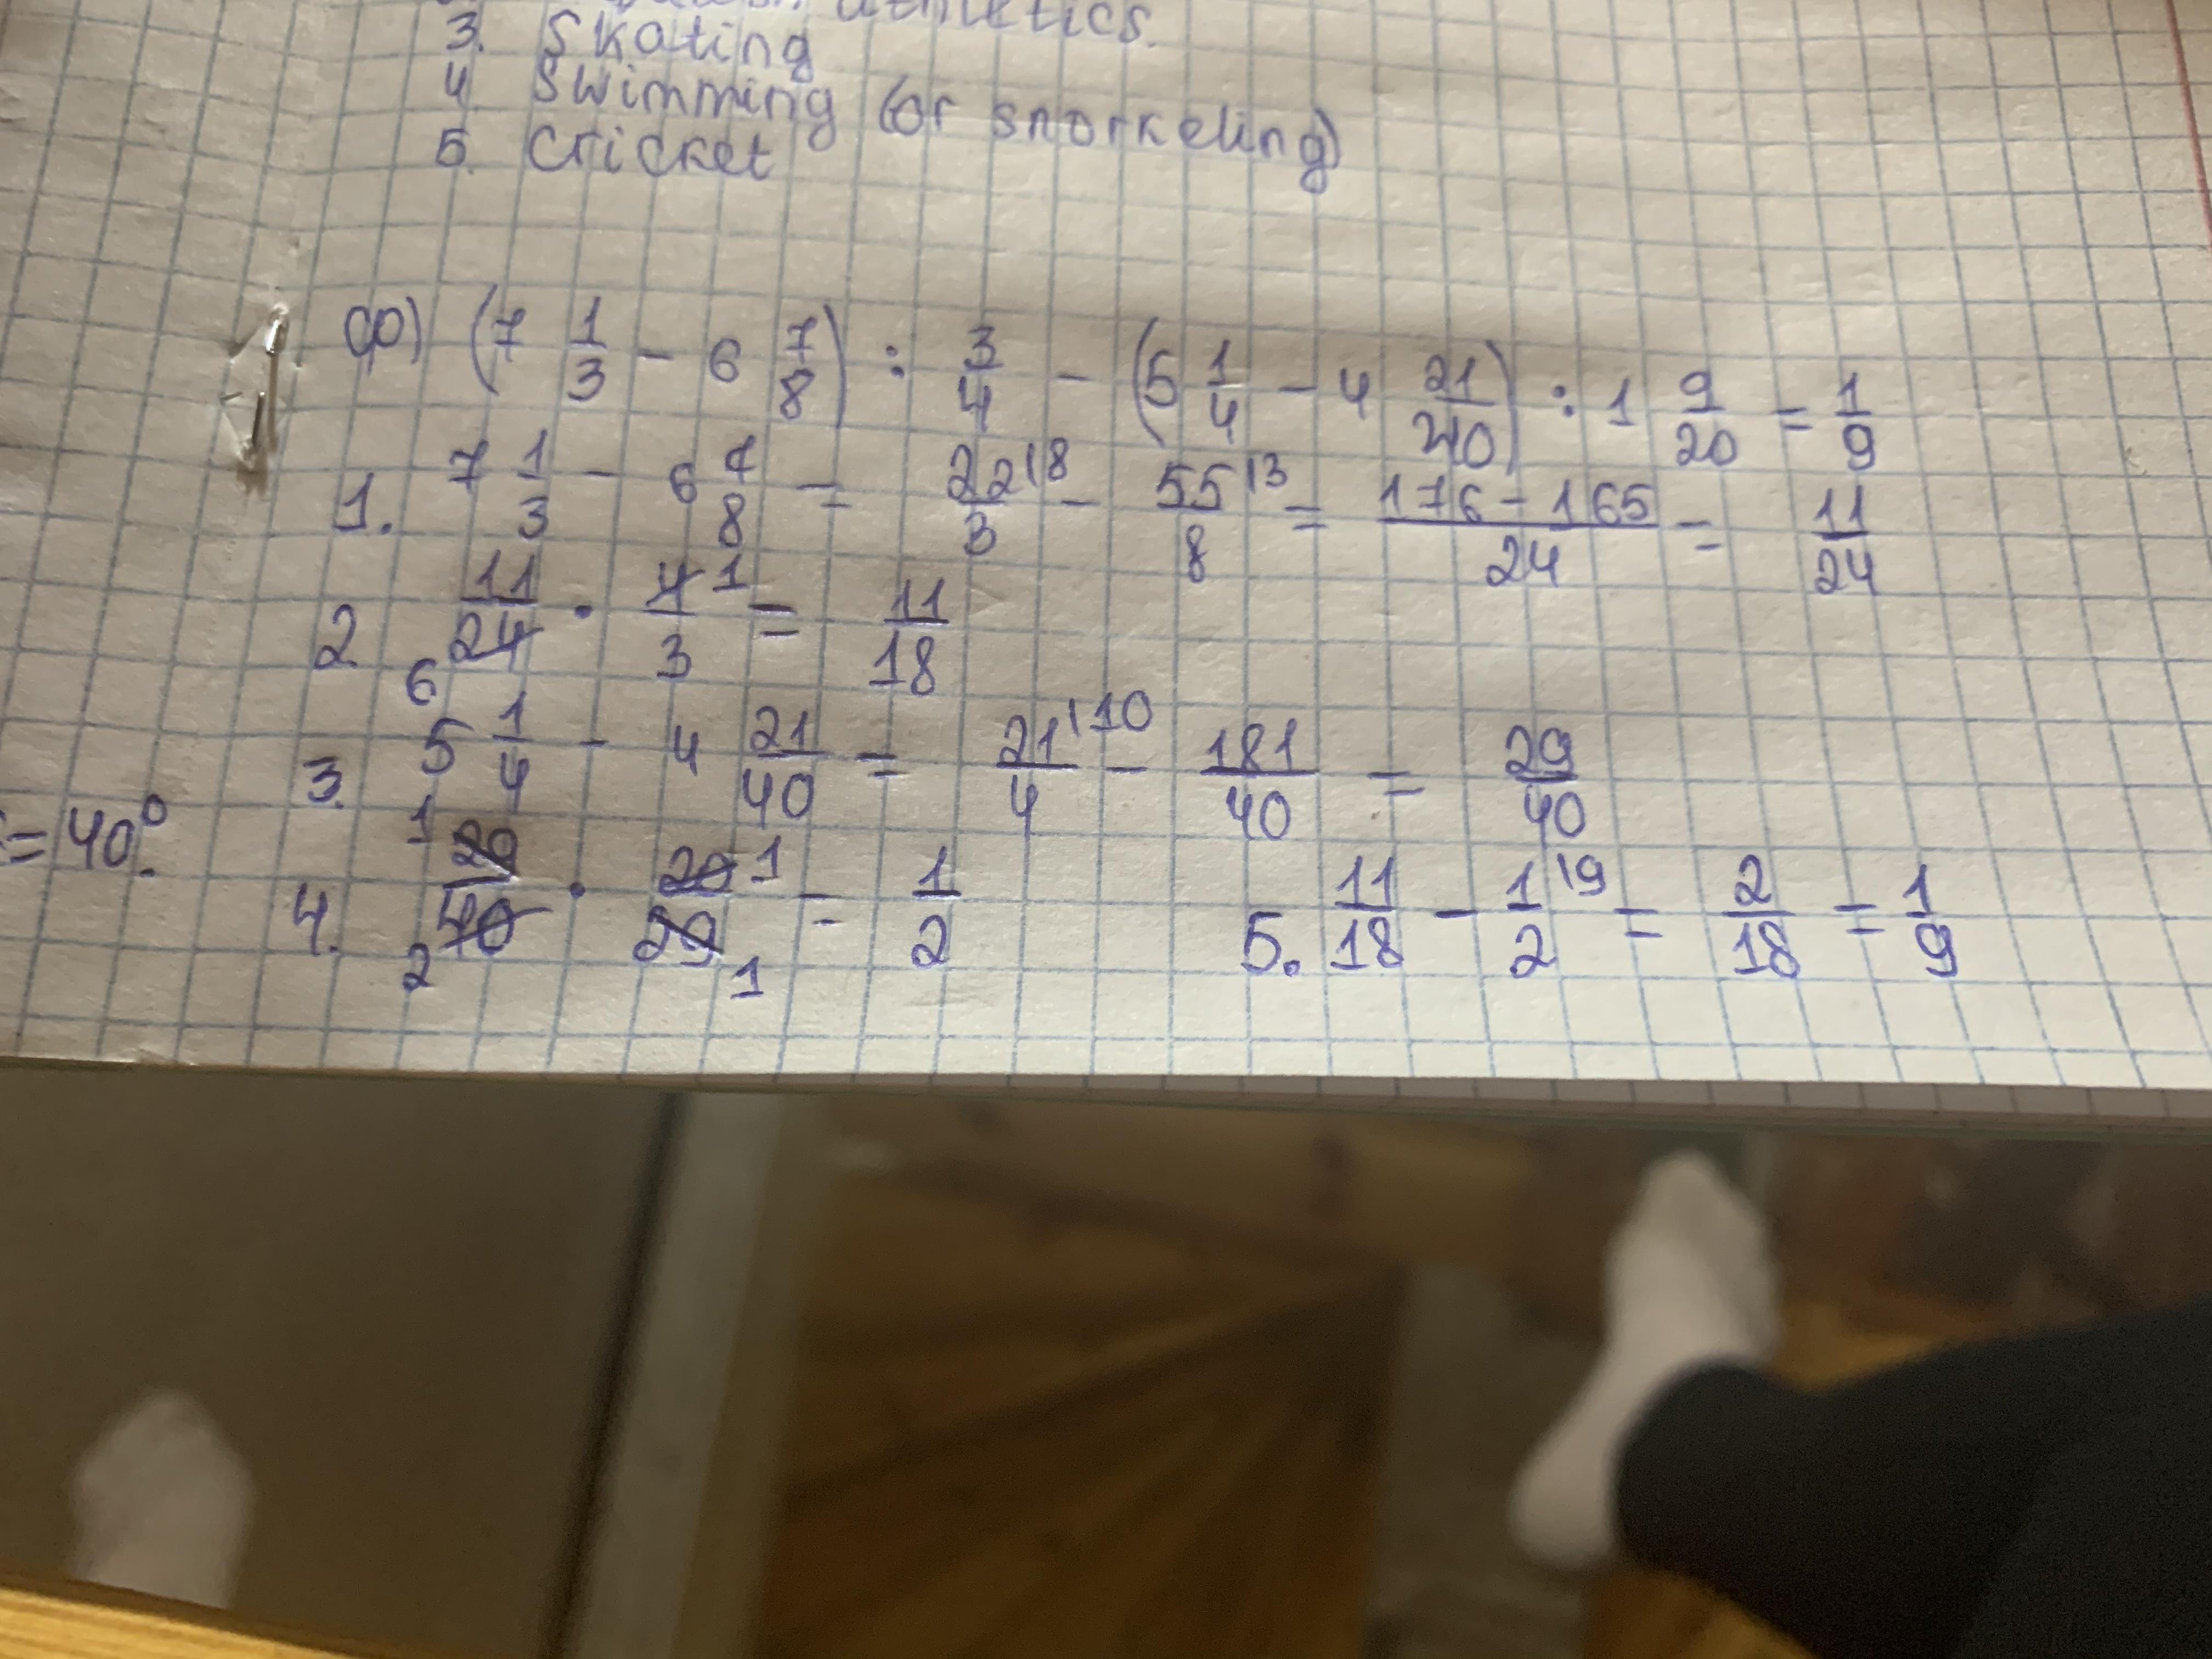 athletics.
3. Skating
4 Swimming (or snorkeling)
5. Cricket
ф) (7 1/3 - 6 7/8) : 3/4 - (5 1/4 - 4 21/40) : 1 9/20 = 1/9
1. 7 1/3 - 6 7/8 = 22\8/3 - 55\3/8 = 176-165/24 = 11/24
2 11/24 6 · 4 1/3 = 11/18
3. 5 1/4 - 4 21/40 = 21\10/4 - 181/40 = 29/40
= 40°.
4. 1 29/40 2 · 20 1/29 1 = 1/2 5. 11/18 - 1\9/2 = 2/18 = 1/9